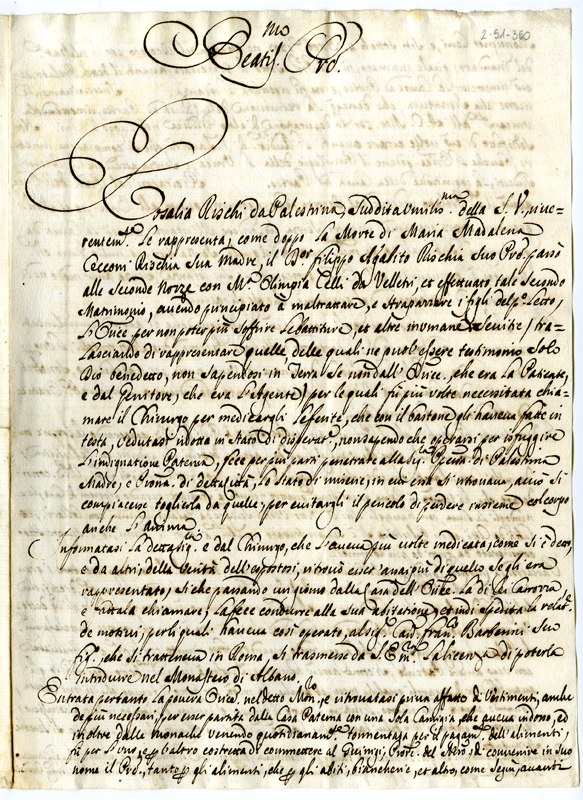 2-51-360
Beatis.mo Prd.
Rosalia Rischi da Palestrina, suddita umilis.ma della S. V., rive-
rentem.te Le rappresenta, come doppo La Morte di Maria Madalena
Cecconi Rischia sua Madre, il filippo Agabito Rischia suo Prd. passò
alle seconde Nozze con Olimpia Celli da Velletri, et effettuato tale secondo
Matrimonio, avendo principiato à maltrattare, e strapazzare i figli del p.o Letto,
L'Orice per non poter più soffrire Le battiture, et altre inumane sevitie, tra-
Lasciando di rappresentare quelle, delle quali ne può essere testimonio solo
Dio benedetto, non sapendosi in Terra se non dall' Orice, che era La Patiente,
e dal Genitore, che era L'Agente, per le quali fù più volte necessitata chia-
mare il Chirurgo per medicargli Le ferite, che con il bastone gli haveva fatte in
testa, vedutasi ridotta in stato di disperat.e, non sapendo che operarsi per isfuggire
L'indignatione Paterna, fece per più parti penetrare alla Sig. di Palestrina
Madre, e Prona. di detta Città, Lo stato di miserie, in cui era si ritrovava, acciò si
compiacesse toglierla da quelle, per evitargli il pericolo di perdere insieme col corpo
anche L'anima.
Informatasi La detta Sig. e dal Chirurgo, che L'aveva più volte medicata, come si è detto,
e da altri, della verità dell'espostosi, ritrovò esser assai più di quello se gli era
rappresentato, si che passando un giorno dalla Casa dell' Orice La di Lei Carrozza
e fattala chiamare, La fece condurre alla sua abitatione, et indi spedita la relat.e
de motivi, per li quali haveva così operato, al Sig. Card. Fran.co Barberini suo
fig., che si tratteneva in Roma, si trasmesse da S. Em. La licenza di poterla
introdurre nel Monastero di Albano.
Entrata pertanto La povera Orice nel detto Mon.ro, e ritrovatasi priva affatto di Vestimenti, anche
de più necessari, per esser partita dalla Casa Paterna con una sola Camigia, che aveva indosso, ed
inoltre dalle monache venendo quotidianam.te tormentata per il pagam.to dell'alimenti,
fù per L'uno, e p L'altro costretta di commettere al Prore. del Mro, di convenire in suo
nome il Prd., tanto p gli alimenti, che p gli abiti, biancherie, et altro, come seguì, avanti